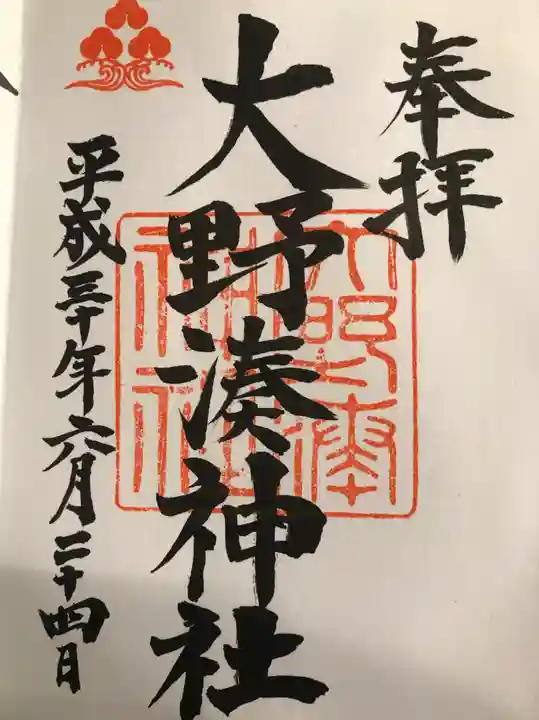 奉拝
大野湊神社
平成三十年六月二十四日
大野湊
神社